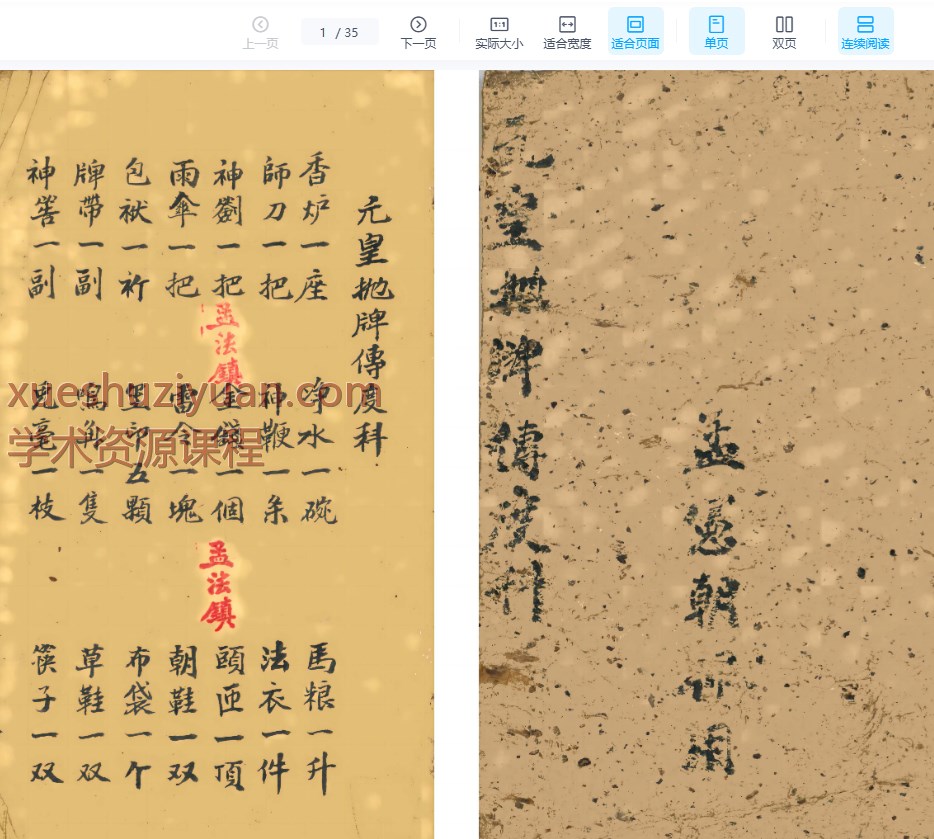 上一页
1 / 35
下一页
实际大小
适合宽度
适合页面
单页
双页
连续阅读
元皇抛牌傳度科
香炉一座
淨水一碗
馬粮一升
師刀一把
神鞭一条
法衣一件
神劉一把
個
頭匝一頂
雨傘一把
雷令一塊
朝鞋一双
包袱一祈
印五顆
布袋一个
牌帶一副
鳴角一隻
草鞋一双
神筶一副
毫一枝
筷子一双
孟法鎮
孟法鎮
xueshuziyuan.com
学术资源课程
元皇抛牌傳度科
孟憑朝
用